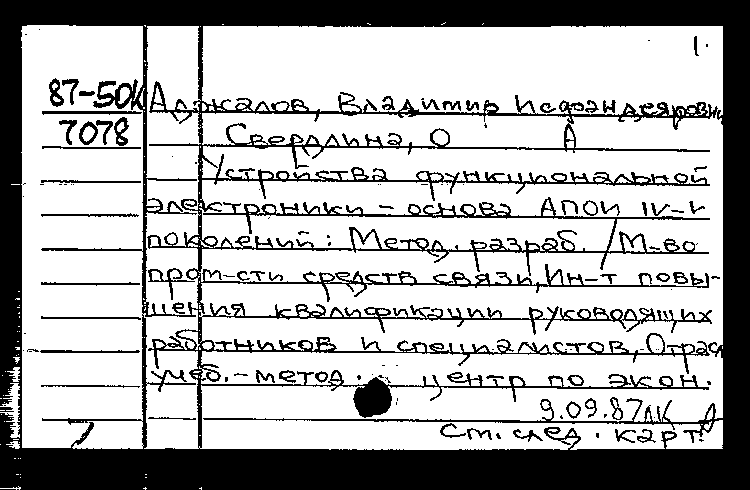 1.
87-50К Аджалов, Владимир
7078 Свердлина, О А
Устройства функциональной
электроники – основа АПОИ IV–V
поколений: Метод. разраб. / М-во
пром-сти средств связи, Ин-т повы-
шения квалификации руководящих
работников и специалистов, Отрасл
учеб.-метод. центр по экон.
9.09.87 ЛК А
См. след. карт.